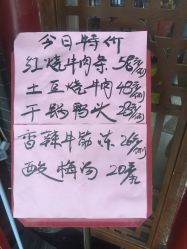 今日特价
红烧牛肉条 58元/份
土豆烧牛肉 48元/份
干锅鸭头 38元/份
香辣牛筋冻 26元/份
酸梅汤 20元/扎